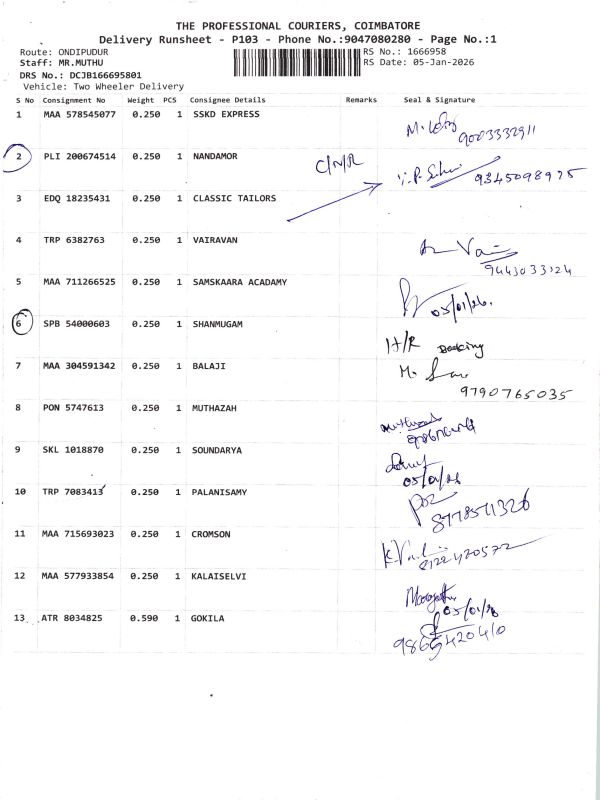 THE PROFESSIONAL COURIERS, COIMBATORE
Delivery Runsheet - P103 - Phone No.:9047080280 - Page No.:1
Route: ONDIPUDUR RS No.: 1666958
Staff: MR.MUTHU RS Date: 05-Jan-2026
DRS No.: DCJB166695801
Vehicle: Two Wheeler Delivery
S No Consignment No Weight PCS Consignee Details Remarks Seal & Signature
1 MAA 578545077 0.250 1 SSKD EXPRESS
9003332911
2 PLI 200674514 0.250 1 NANDAMOR C/N/R
9345098975
3 EDQ 18235431 0.250 1 CLASSIC TAILORS
4 TRP 6382763 0.250 1 VAIRAVAN
9443033124
5 MAA 711266525 0.250 1 SAMSKAARA ACADAMY
05/01/26.
6 SPB 54000603 0.250 1 SHANMUGAM
H/R Booking
7 MAA 304591342 0.250 1 BALAJI
9790765035
8 PON 5747613 0.250 1 MUTHAZAH
9 SKL 1018870 0.250 1 SOUNDARYA
05/01/26
10 TRP 7083413 0.250 1 PALANISAMY
8778511326
11 MAA 715693023 0.250 1 CROMSON
8122420572
12 MAA 577933854 0.250 1 KALAISELVI
05/01/26
13 ATR 8034825 0.590 1 GOKILA
9865420410